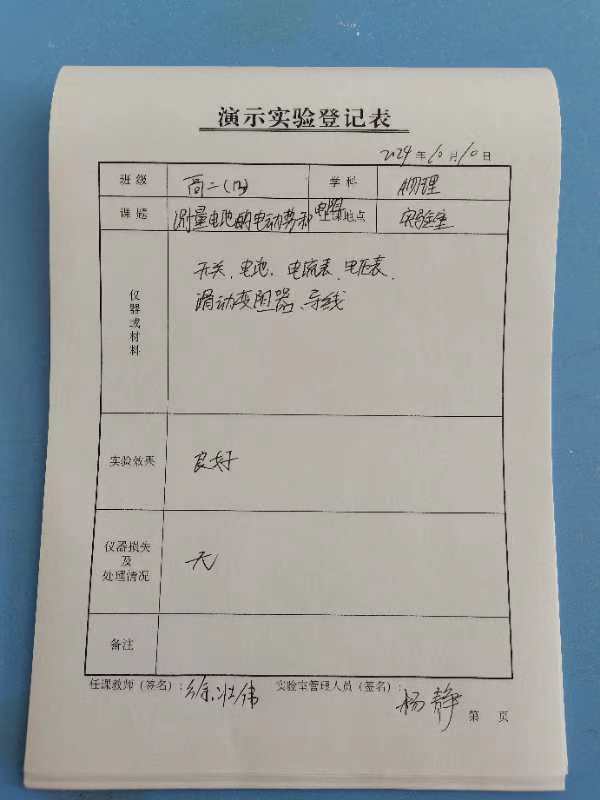 演示实验登记表
2024年10月10日
班级 高二(四) 学科 物理
课题 测量电池的电动势和电阻 地点 实验室
仪器或材料 开关、电池、电流表、电压表、
滑动变阻器、导线
实验效果 良好
仪器损失
及
处理情况 无
备注
任课教师(签名): 徐壮伟 实验室管理人员(签名): 杨静
第 页